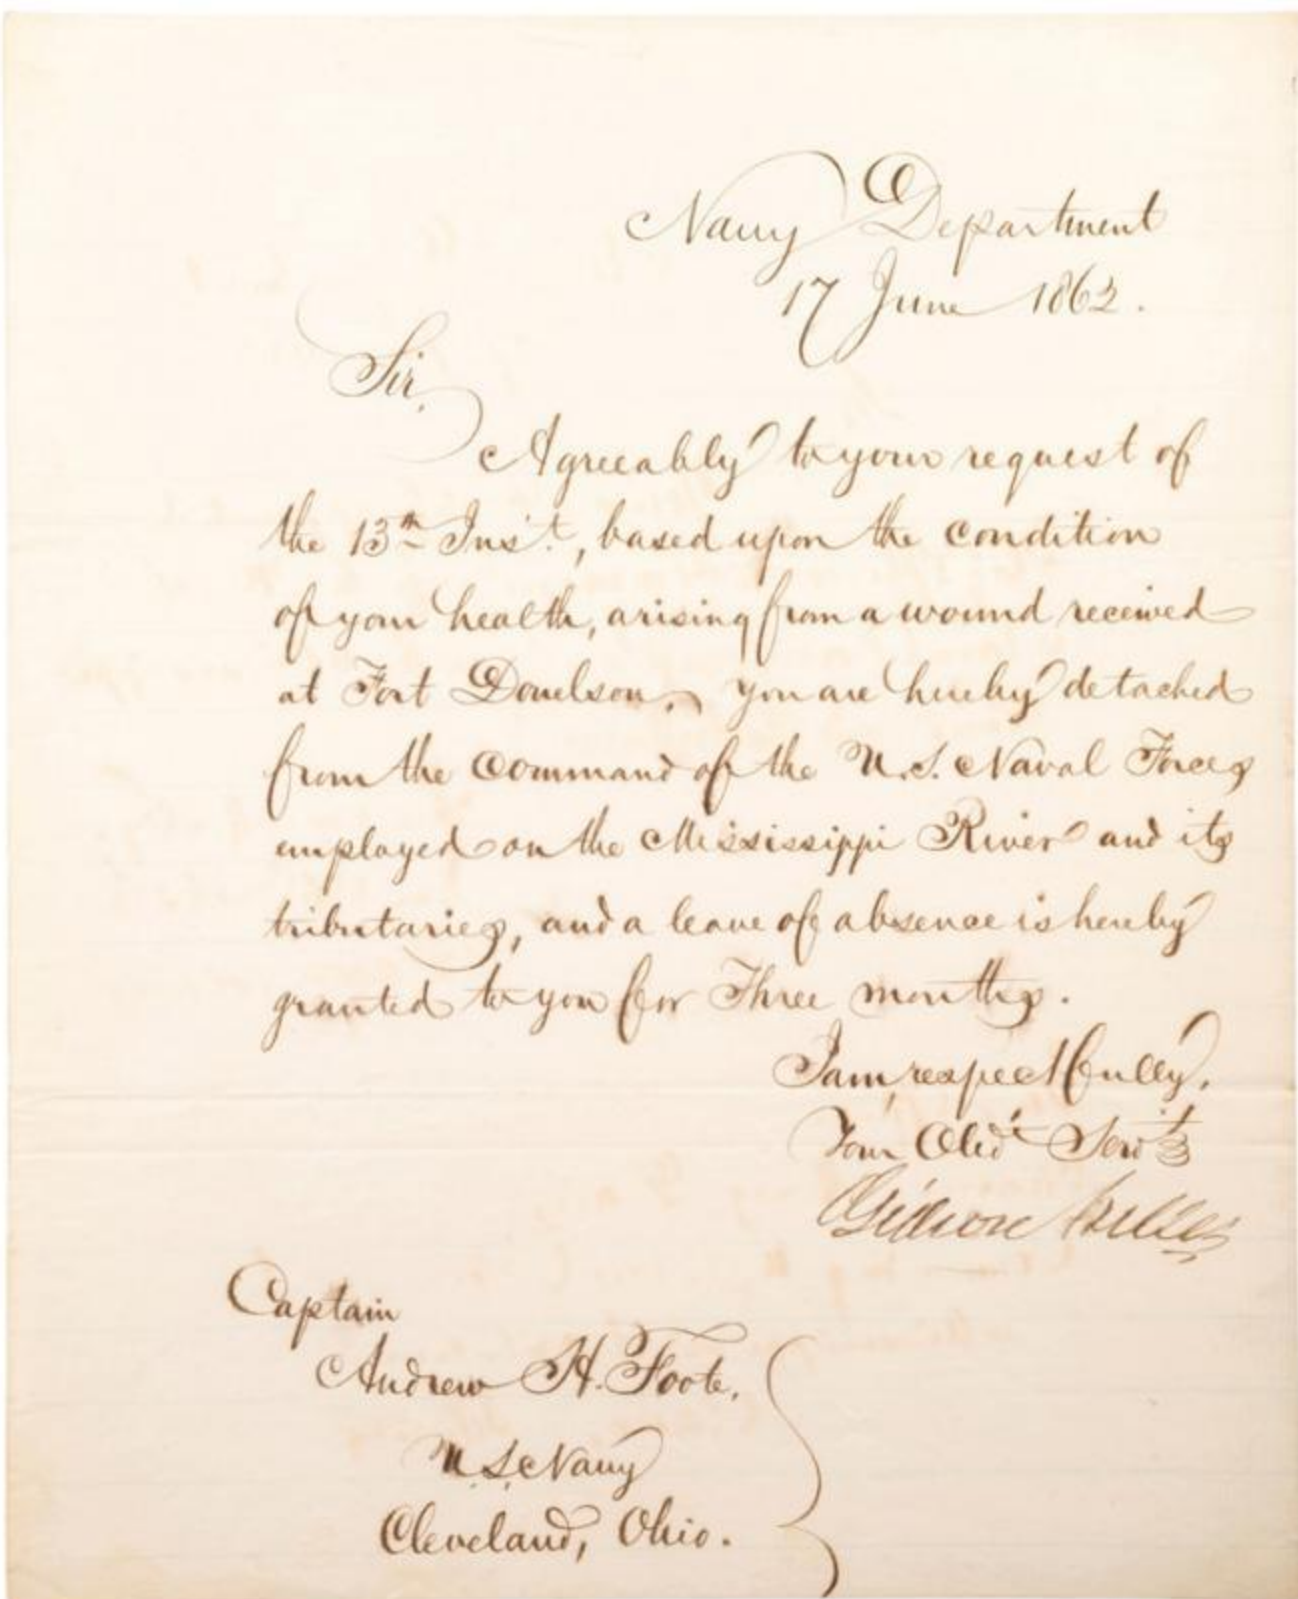 Navy Department
17 June 1862.
Sir,
Agreeably to your request of
the 13th Inst., based upon the condition
of your health, arising from a wound received
at Fort Donelson, you are hereby detached
from the Command of the U.S. Naval Forces
employed on the Mississippi River and its
tributaries, and a leave of absence is hereby
granted to you for Three months.
I am, respectfully,
Your Obdt Servt
Gideon Welles
Captain
Andrew H. Foote,
U.S. Navy
Cleveland, Ohio.